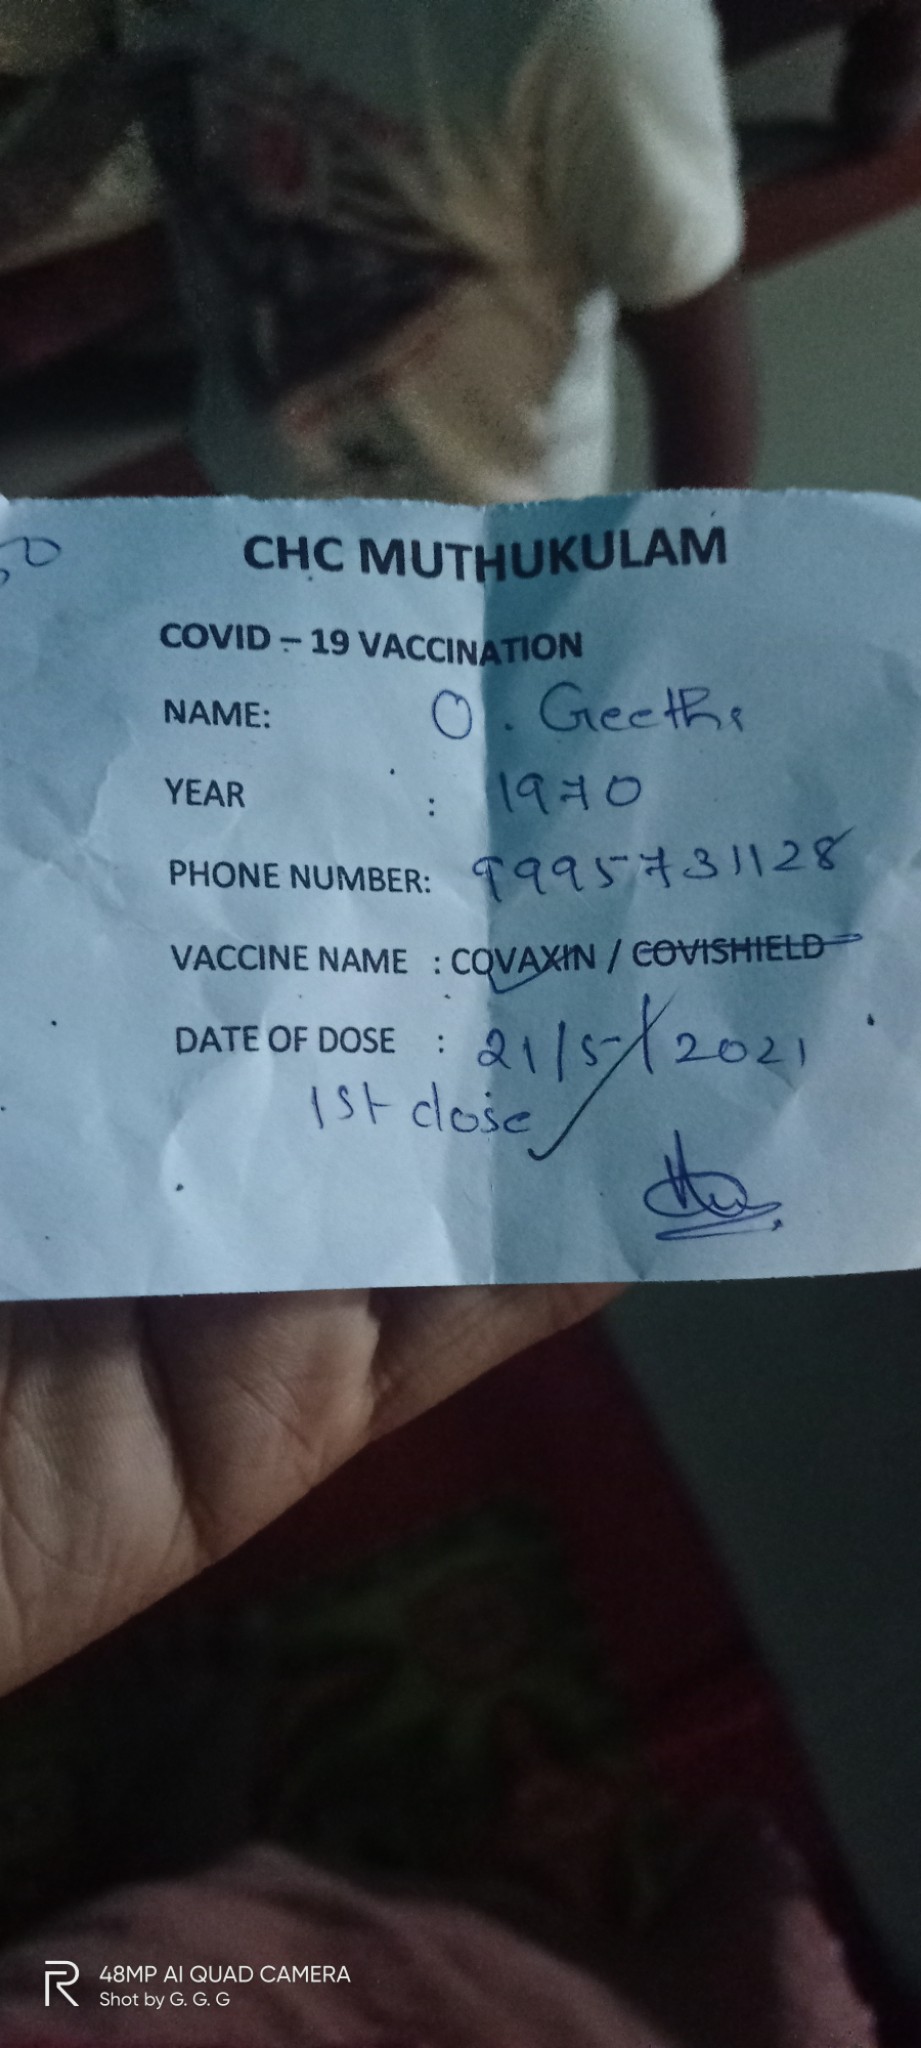 50
CHC MUTHUKULAM
COVID – 19 VACCINATION
NAME: O. Geetha
YEAR : 1970
PHONE NUMBER: 9995731128
VACCINE NAME : COVAXIN / COVISHIELD
DATE OF DOSE : 21/5/2021
1st dose
48MP AI QUAD CAMERA
Shot by G. G. G